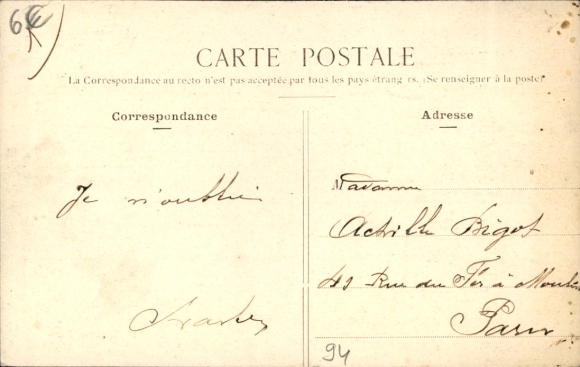 6€
CARTE POSTALE
La Correspondance au recto n'est pas acceptée par tous les pays étrang rs. (Se renseigner à la poste)
Correspondance
Adresse
Je n'oublie
Madame
Achille Bigot
41 Rue du Fer à Moulin
Paris
94